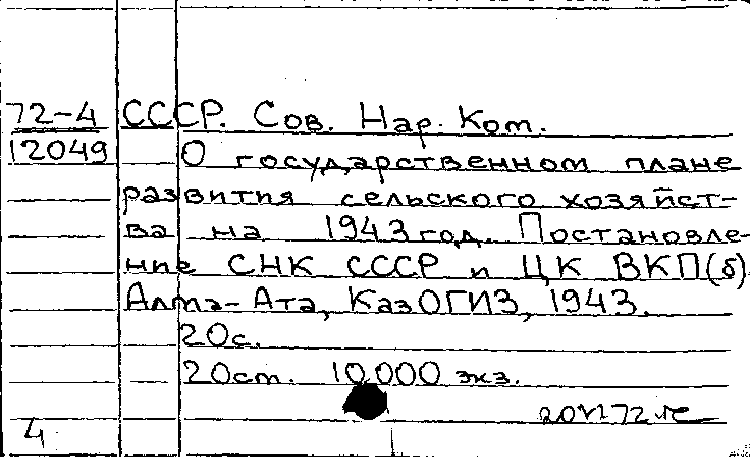 72-4 СССР. Сов. Нар. Ком.
12049 О государственном плане
развития сельского хозяйст-
ва на 1943 год. Постановле-
ние СНК СССР и ЦК ВКП(б)
Алма-Ата, КазОГИЗ, 1943.
20с.
20ст. 10.000 экз.
4